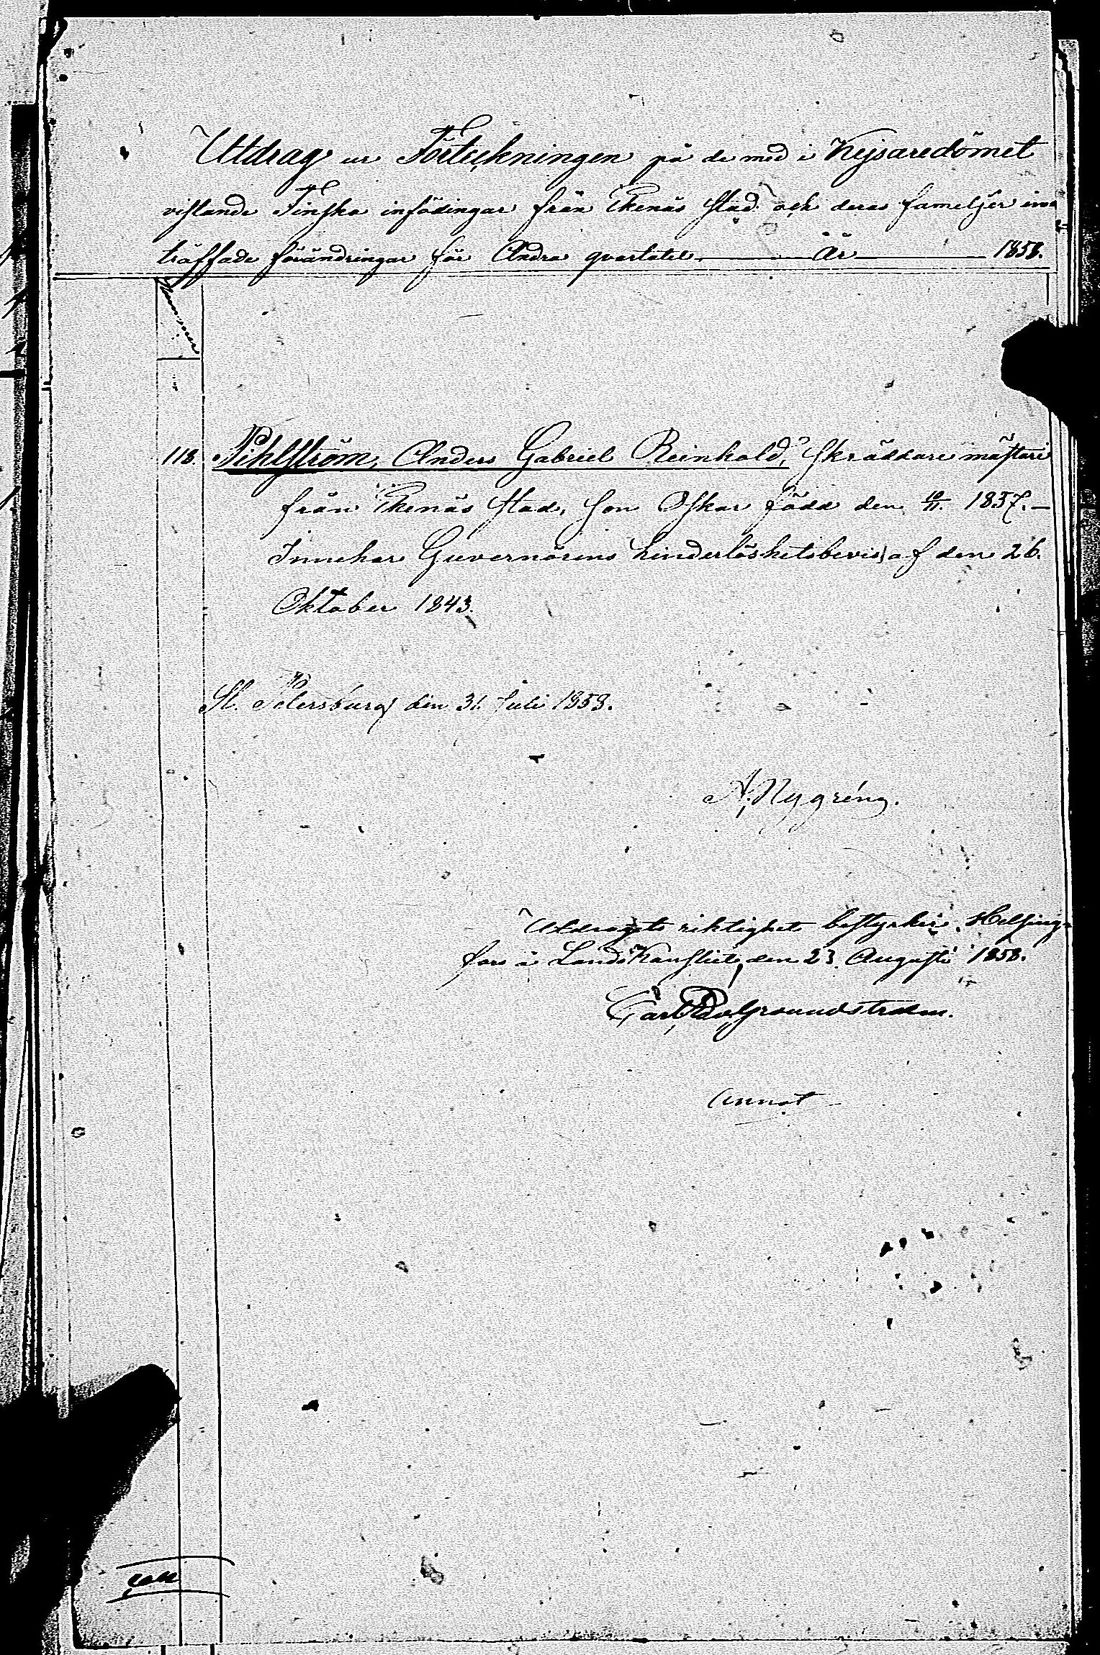 Utdrag ur Förteckningen på de med i Kejsaredömet
vistande Finska infödingar från Ekenäs stad och deras fameljer in
träffade förändringar för Andra qvartalet År 1858.
Nummer
118. Pihlström, Anders Gabriel Reinhold, Skräddare mästare
från Ekenäs stad, son Oskar född den 1857.
Innehar Guvernörens hinderlöshetsbevis af den 26.
Oktober 1843.
St. Petersburg den 31. Juli 1858.
A. Nygrén
Utdragets riktighet bestyrker, Helsing-
fors å Lands Kansliet, den 23. Augusti 1858.
Carl Groundstroem.
Annot